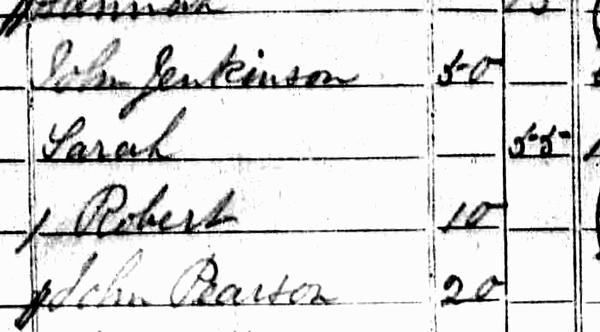 Hannah 15
John Jenkinson 50
Sarah 55
/ Robert 10
// John Pearson 20